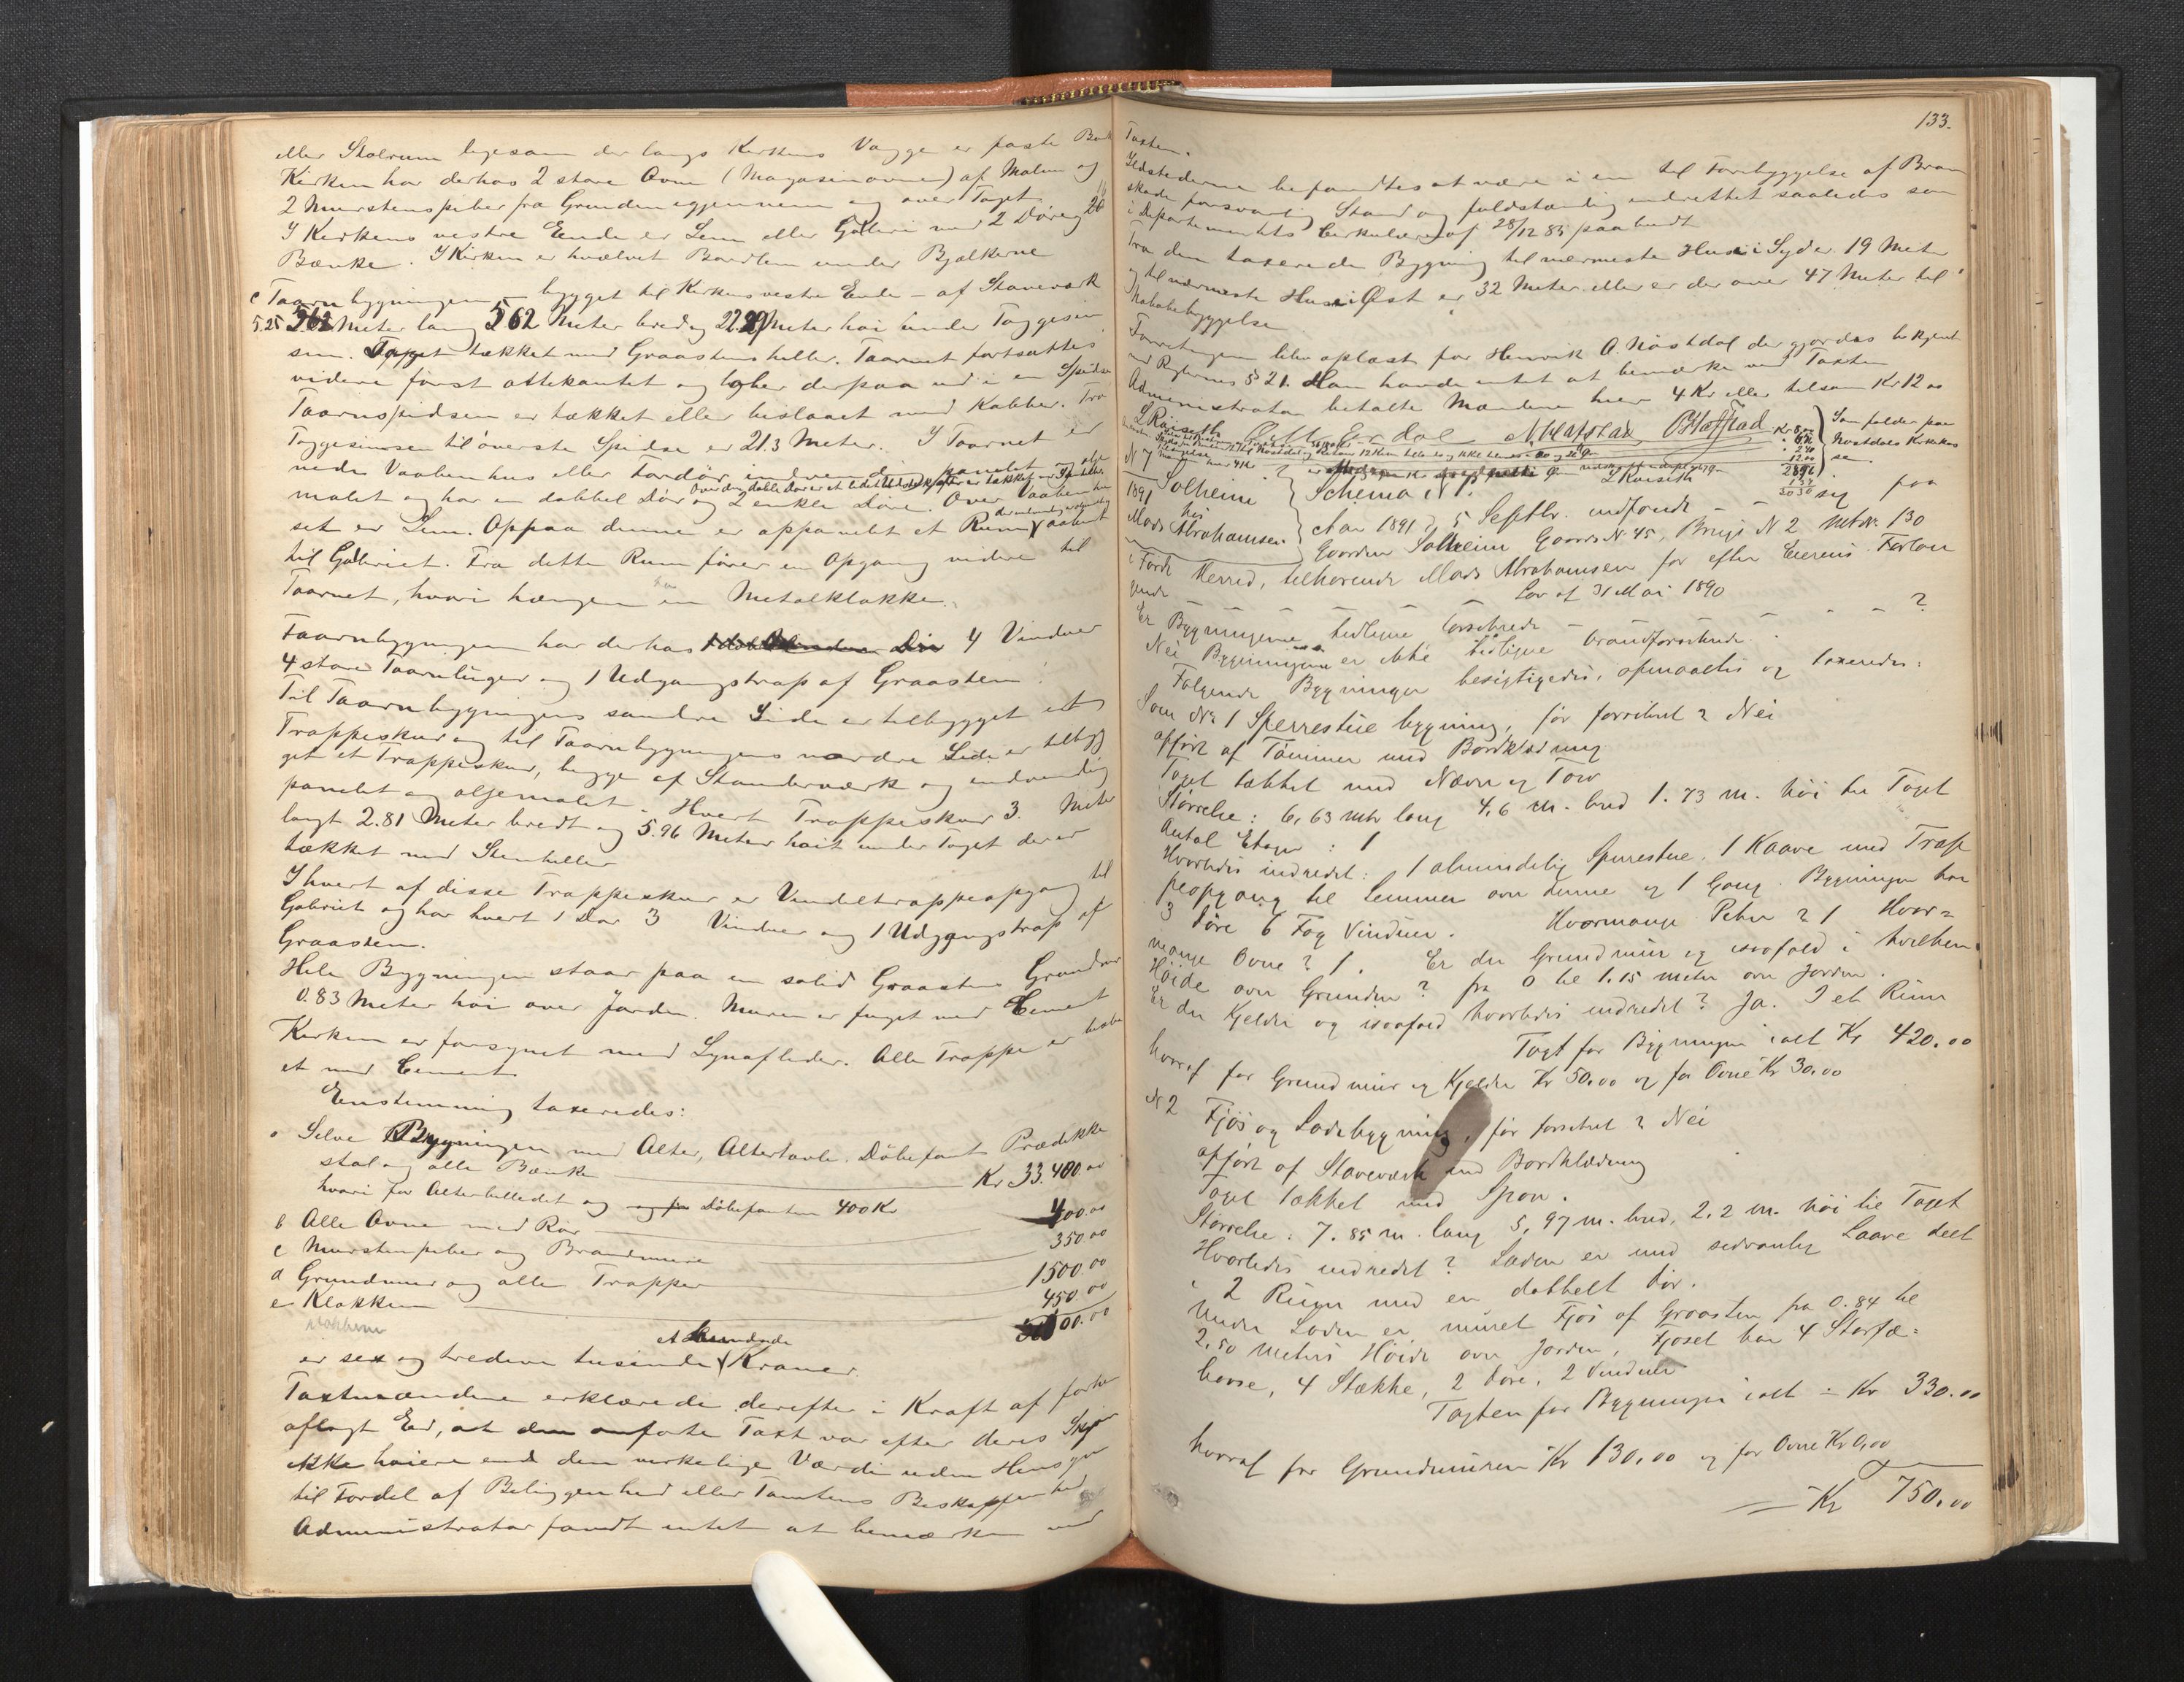 eller Stolrum ligesom der langs Kirkens Vægge er faste Bænk
Kirken har derhos 2 store Ovne (Magasinovne) af Malm og
2 Murstenspiber fra Grunden igjennem og over Taget
I Kirkens vestre Ende er Lem eller Galleri med 2 Døre og 20
Bænke. I Kirken er hvælvet Bordlem under Bjælkerne
c Taarnbygningen bygget til Kirkens vestre Ende - af Staveværk
5.25 Meter lang 5 62 Meter bred og Meter høi under Taggesim
sen. Taget tækket med Graastensheller. Taarnet fortsættes
videre først ottekantet og løber derpaa ud i en Spidse
Taarnspidsen er tækket eller beslaaet med Kobber. Fra
Taggesimsen til øverste Spidse er 21.3 Meter. I Taarnet er
nedre Vaabenhus eller Fordør, indvendig panelet og olje
malet og har en dobbel Dør og 2 enkle Døre. Over Vaabenhu
set er Lem. Oppaa denne er oppanelet et Rum aabent
til Galleriet. Fra dette Rum fører en Opgang videre til
Taarnet, hvori hænger en Metalklokke.
Taarnbygningen har derhos 4 Vinduer
4 store Taarnluger og 1 Udgangstrap af Graasten.
Til Taarnbygningens søndre Side er tilbygget et
Trappeskur og til Taarnbygningens nordre Side er tilbyg
get et Trappeskur, begge af Stenderværk og indvendig
panelet og oljemalet. Hvert Trappeskur 3. Meter
langt 2.81 Meter bredt og 5.96 Meter høit under Taget der er
tækket med Stenheller
I hvert af disse Trappeskur er Vindeltrappeopgang til
Galeriet og har hvert 1 Dør 3 Vinduer og 1 Udgangstrap af
Graasten.
Hele Bygningen staar paa en solid Graastens Grundmur
0.83 Meter høi over Jorden. Muren er fuget med Cement
Kirken er forsynet med Lynafleder. Alle Trappe er
et med Cement
Enstemmig taxeredes:
a Selve Bygningen med Alter, Altertavle, Døbefont Prædikke
stol og alle Bænke Kr 33.400.00
hvori for Alterbilledet og Døbefonten 400 Kr
b Alle Ovne med Rør 400.00
c Murstenspiber og Brandmure 350.00
d Grundmur og alle Trapper 1500.00
e Klokken 450.00
er sex og tredive tusinde et hundrede Kroner.
Taxtmændene erklærede derefter i Kraft af forhen
aflagt Ed, at den anførte Taxt var efter deres Skjøn
ikke høiere end den virkelige Værdi uden Hensyn
til Fordel af Beliggenhed eller Tomtens Beskaffenhed
Administrator fandt intet at bemærke ved
133.
Taxten.
Ildstederne befandtes at være i en til Forebyggelse af Bran
skade forsvarlig Stand og fuldstændig indrettet saaledes som
i Departementets Cirkulære af 28/12 85 paabudt
Fra den taxerede Bygning til nærmeste Huse i Syd er 19 Meter
og til nærmeste Huse i Øst er 32 Meter eller er der over 47 Meter til
Nabobebyggelse
Forretningen blev oplæst for Henrik O. Nøstdal der gjordes bekjent
med Reglernes § 21. Han havde intet at bemærke ved Taxten
Administrator betalte Mændene hver 4 Kr eller tilsam Kr 12 00
L Kaiseth
Som falder paa
Nøstdals Kirkekas
se.
N 7
Solheim
1891
his
Mads Abrahamsen
Schema N 1.
Aar 1891 d. 5 Septbr. indfandt sig paa
Gaarden Solheim Gaards N. 45, Brugs N 2 Mtr. 130
i Førde Herred, tilhørende Mads Abrahamsen for efter Eierens Forlan
gende Lov af 31 Mai 1890
Er Bygningerne tidligere forsikrede ?
Nei Bygningerne er ikke tidligere brandforsikrede.
Følgende Bygninger besigtigedes, opmaaltes og taxeredes:
Som No 1 Sperrestue bygning, før forsikret ? Nei
opført af Tømmer med Bordklædning
Taget tækket med Næver og Torv
Størrelse: 6,63 mtr lang 4,6 m. bred 1.73 m. høi til Taget
Antal Etager : 1
Hvorledes indredet: 1 almindelig Sperrestue. 1 Kaave med Trap
peopgang til Lemmen over denne og 1 Gang. Bygningen har
3 Døre 6 Fag Vinduer. Hvormange Piber ? 1 Hvor=
mange Ovne ? 1. Er der Grundmur og isaafald i hvilken
Høide over Grunden ? fra 0 til 1.15 meter over Jorden.
Er der Kjelder og isaafald hvorledes indredet ? Ja. I et Rum
Taxt for Bygningen ialt Kr 420.00
hvoraf for Grundmur og Kjelder Kr 50.00 og for Ovne Kr 30.00
N 2 Fjøs og Ladebygning, før forsikret ? Nei
opført af Staveværk med Bordklædning
Taget tækket med Spon.
Størrelse: 7.85 m. lang 5,97 m. bred, 2.2 m. høi til Taget
Hvorledes indredet ? Laden er med sedvanlig Laave delt
i 2 Rum med en dobbelt Dør.
Under Laden er muret Fjøs af Graasten fra 0.84 til
2.50 meters Høide over Jorden, Fjøset har 4 Storfæ=
baase, 4 Stække, 2 Døre, 2 Vinduer
Taxten for Bygningen ialt = Kr 330.00
hvoraf for Grundmuren Kr 130.00 og for Ovne Kr 0,00
Kr 750.00